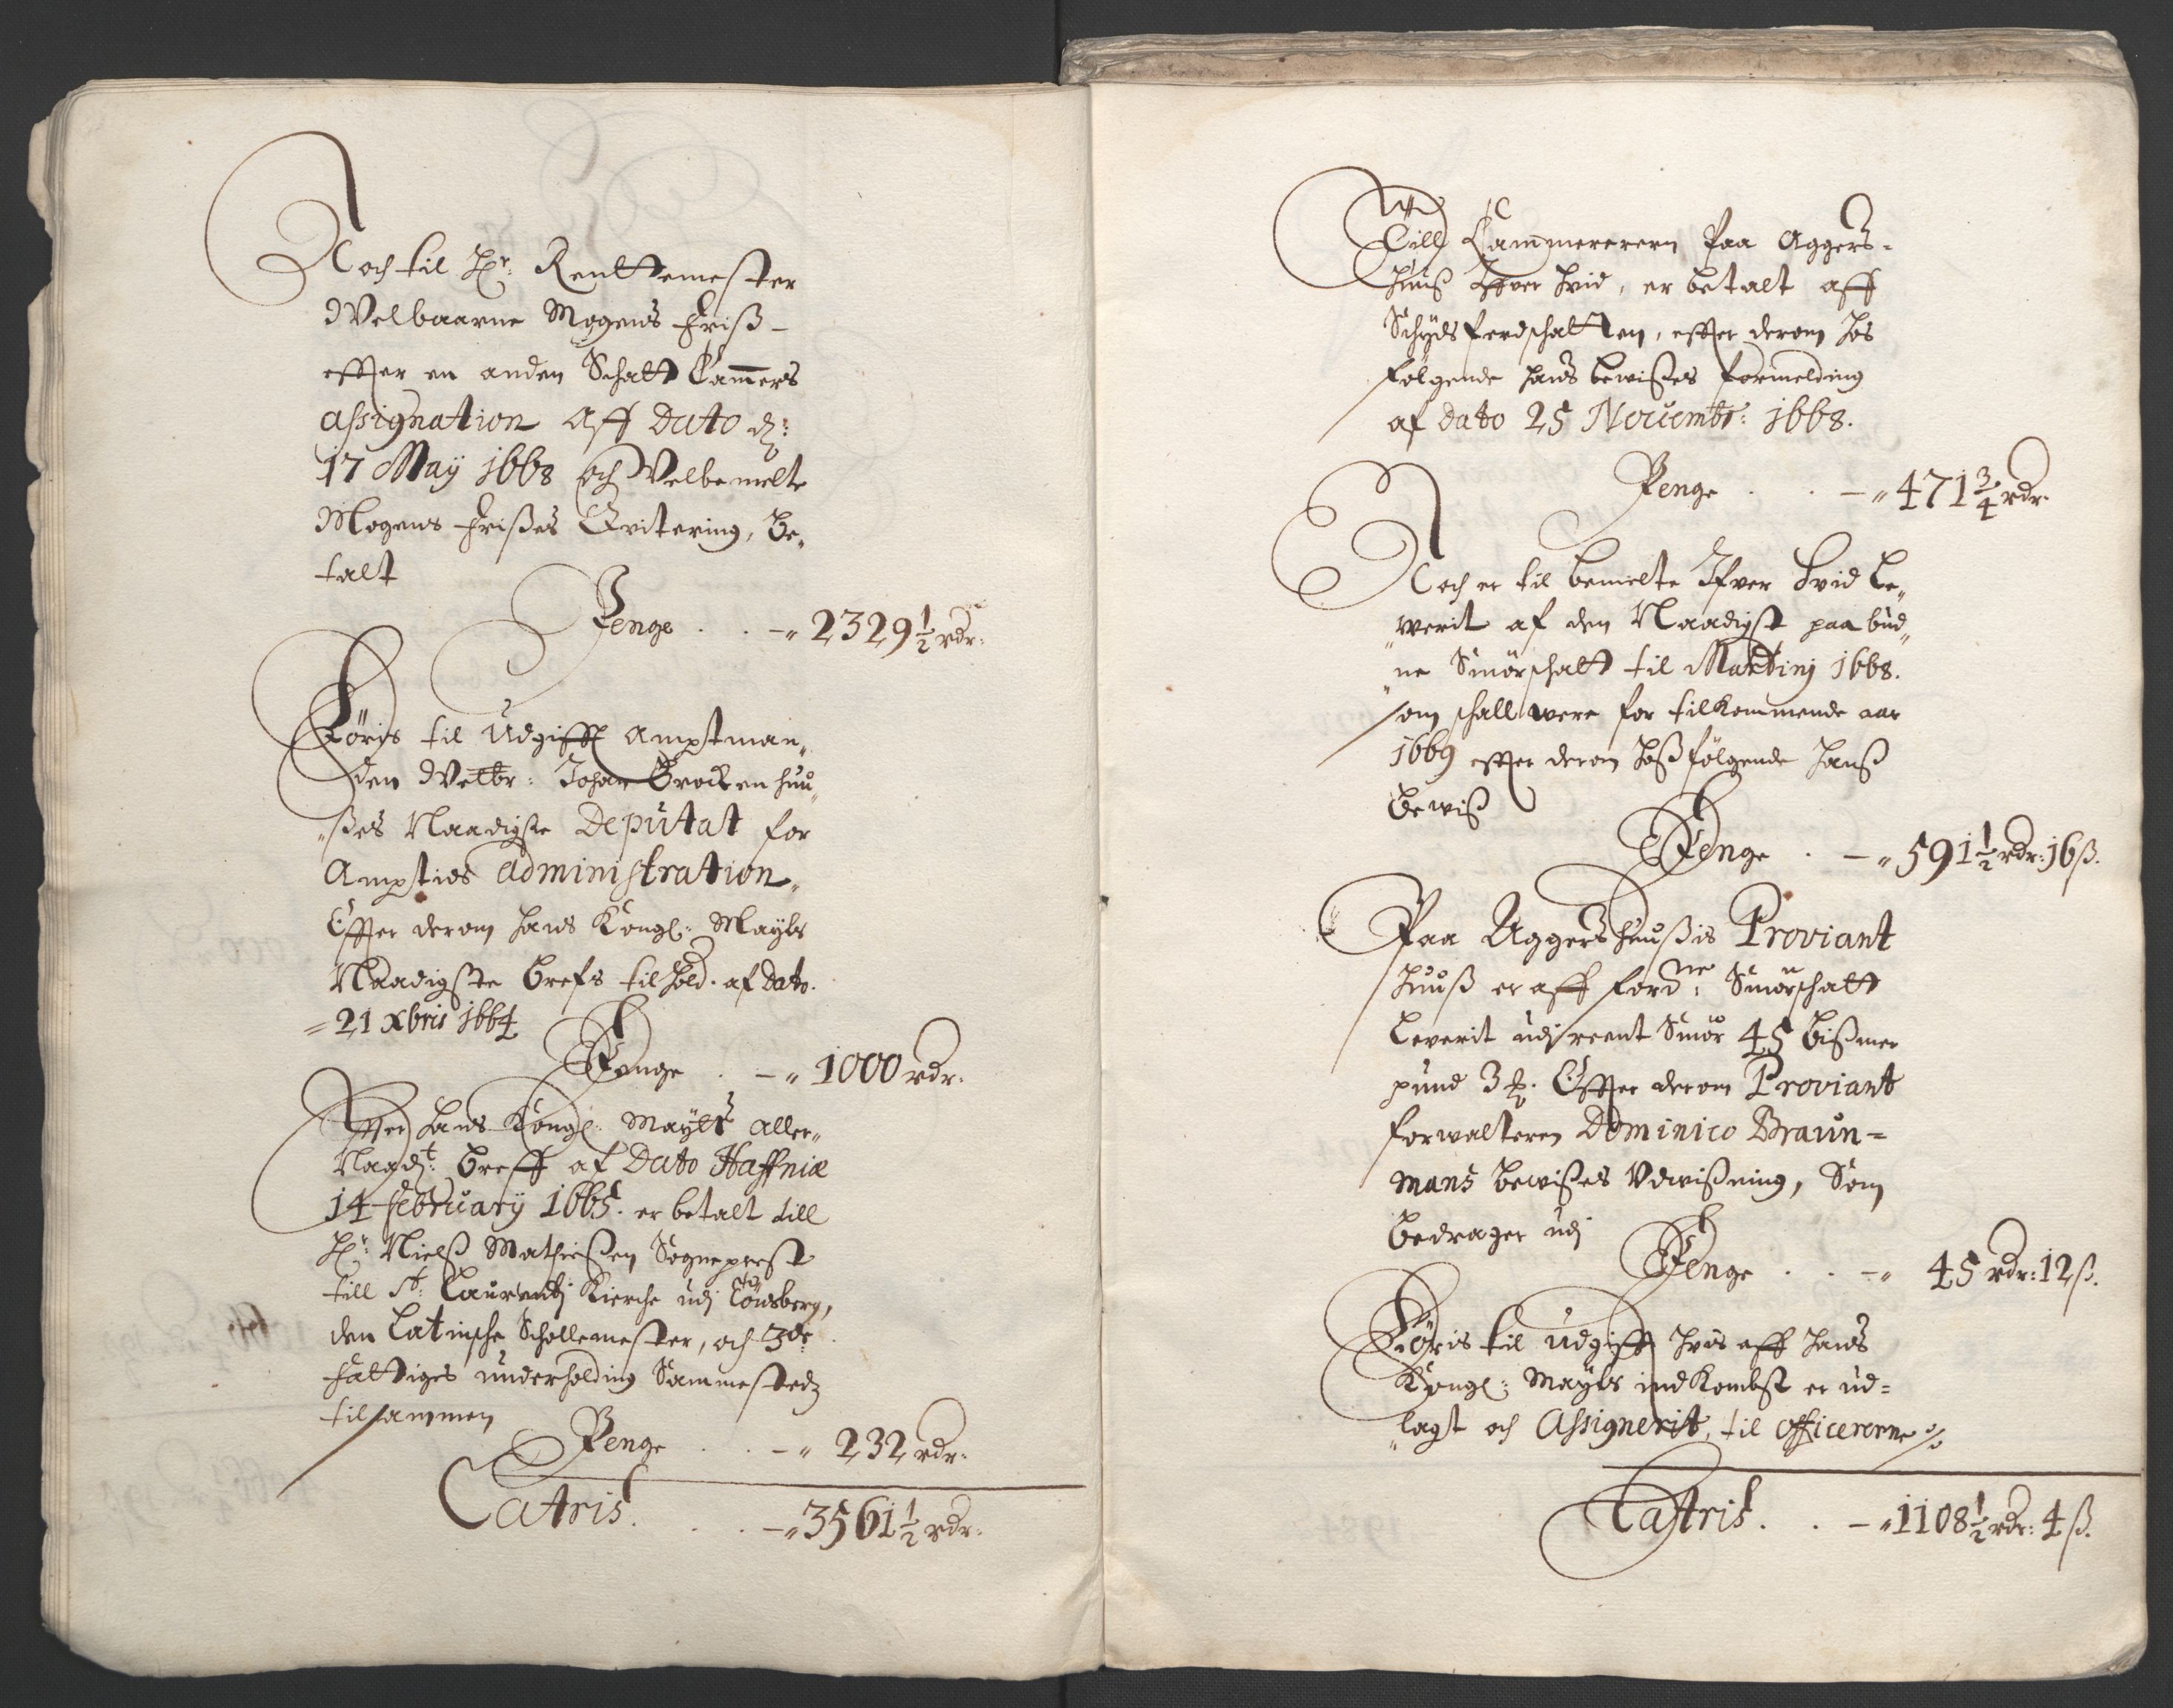 Noch til Hr: Renttemester
Welbaarne Mogens Friiß
effter en anden Schatt Cammers
assignation aff Dato d:
17 May 1668 och Velbemelte
Mogens Frißes Qvitering, be„
talt
Penge . . — „ 2329½ rdr:
Föris til Udgifft Amptman„
den Welbr: Johan Brockenhuu„
„ßes Naadigste Deputat for
Amptids Administration„
Effter derom hans Kongl: Mayts
Naadigste brefs tilhold. af Dato.
= 21 Xbris 1664
Penge . — „ 1000 rdr.
Effter Hans Kongl: Maytt: Aller„
Naadt: breff af Dato Haffniæ
14 February 1665. er betalt till
Hr: Nielß Mathießen Sogneprest
till St: Laurentij Kierche udj Tönsberg,
den Latinsche Schollemester, och 3de
fattiges underholding Sammestedz
tilsammen
Penge . . — „ 232 rdr:
Latris . . . — „ 3561½ rdr:
Till Cammererern paa Aggers=
huuß Ifver Hvid, er betalt aff
Schydsferdschatten, effter derom hos
følgende hans bewißes formelding
af dato 25 Novembr: 1668.
Penge . . — „ 471¾ rdr.
Noch er til bemelte Ifver Hvid le„
„werit af den Naadigst paabud„
„ne Smörschatt til Martinj 1668.
som schall were for tilkommende aar
1669 effter derom hoßfölgende hanß
bewiß
Penge . — „ 591½ rdr: 16 ß.
Paa Aggershuußis Proviant
huuß er aff fordne: Smörschatt
leverit udj reent Smör 45 bißmer
pund 3 ℔. Effter derom Proviant
forwalteren Dominico Braun=
mans bewißes Udwißning, Som
bedrager udj
Penge . . — „ 45 rdr: 12 ß.
Föris til Udgifft hvis aff hans
Kongl: Mayts indkombst er ud=
„lagt och Assignerit, til officererne
Latris . . — „ 1108½ rdr: 4 ß.